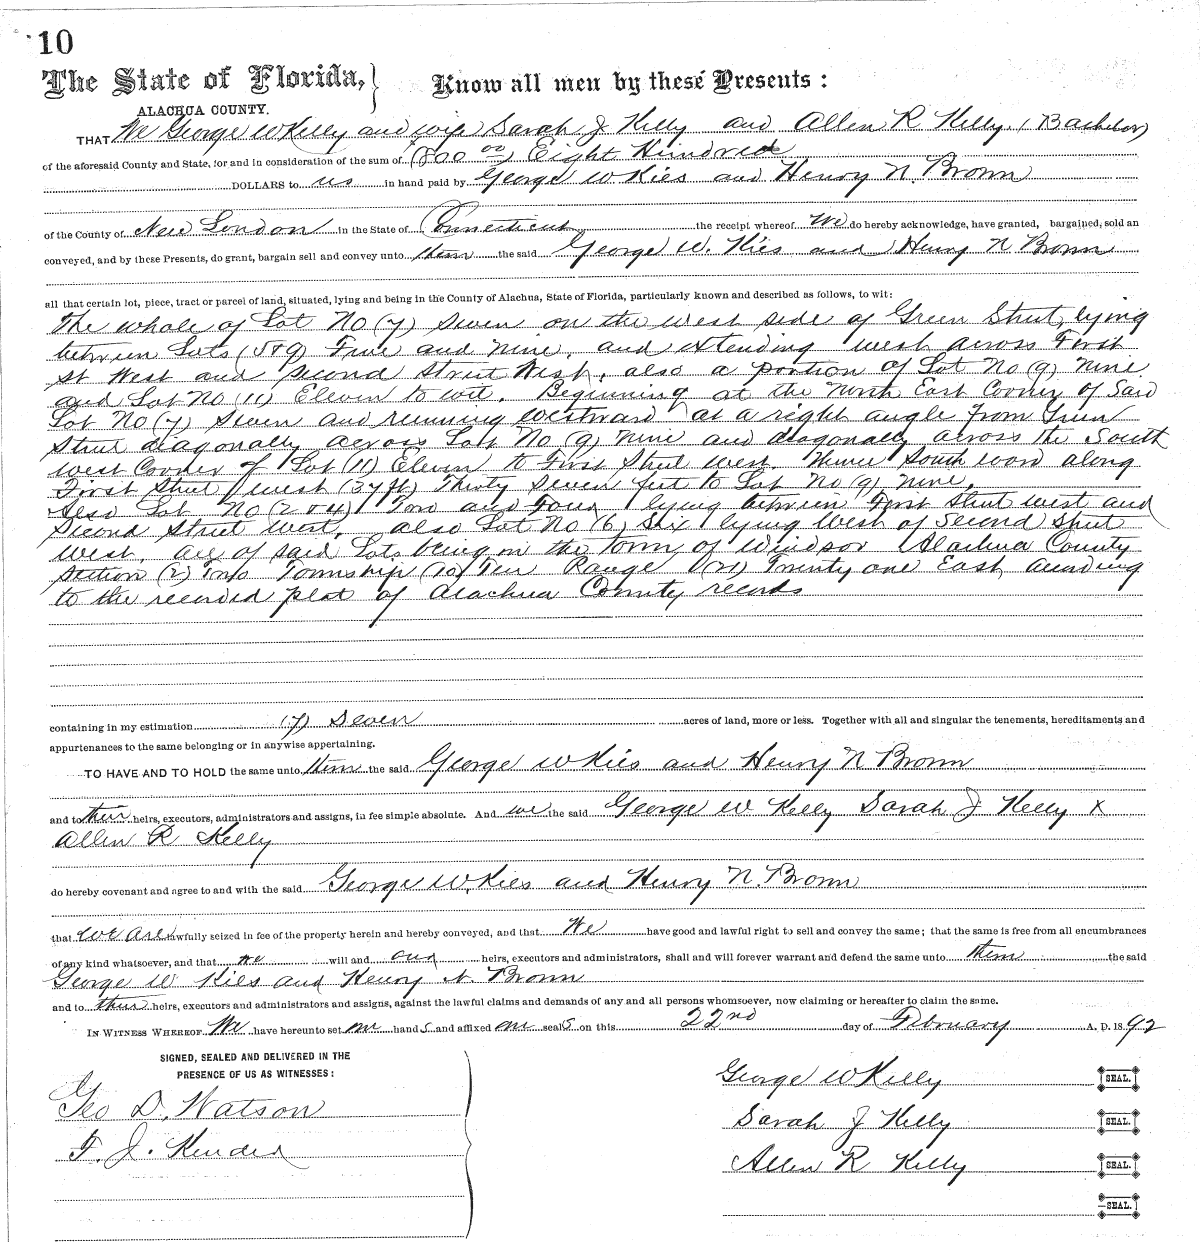 10
The State of Florida,
Know all men by these Presents :
ALACHUA COUNTY.
THAT We George W Kelly and wife Sarah J Kelly and Allen R Kelly. (Bachelor)
of the aforesaid County and State, for and in consideration of the sum of (800 00) Eight Hundred
DOLLARS to us in hand paid by George W Kies and Henry N. Brown
of the County of New London in the State of Connecticut the receipt whereof We do hereby acknowledge, have granted, bargained, sold an
conveyed, and by these Presents, do grant, bargain sell and convey unto them the said George W. Kies and Henry N Brown
all that certain lot, piece, tract or parcel of land, situated, lying and being in the County of Alachua, State of Florida, particularly known and described as follows, to wit:
The whole of Lot No (7) Seven on the west side of Green Street, lying
between Lots (5 & 9) Five and Nine, and extending west across First
St West and Second Street West, also a portion of Lot No (9) Nine
and Lot No (11) Eleven to wit. Beginning at the North East Corner of Said
Lot No (7) Seven and running westward at a right angle from Green
Street diagonally across Lot No (9) Nine and diagonally across the South
west Corner of Lot (11) Eleven to First Street west. Thence South ward along
First Street west (37 ft) Thirty Seven feet to Lot No (9) Nine.
Also Lot No (2 & 4) Two and Four lying between First Street west and
Second Street West, also Lot No (6) Six lying West of Second Street
West. all of said Lots being in the Town of Windsor Alachua County
Section (2) Two Township (10) Ten Range (21) Twenty one East according
to the recorded plat of Alachua County records
containing in my estimation (7) Seven acres of land, more or less. Together with all and singular the tenements, hereditaments and
appurtenances to the same belonging or in anywise appertaining.
TO HAVE AND TO HOLD the same unto them the said George W Kies and Henry N Brown
and to their heirs, executors, administrators and assigns, in fee simple absolute. And we the said George W Kelly Sarah J Kelly x
Allen R Kelly
do hereby covenant and agree to and with the said George W. Kies and Henry N. Brown
that we are lawfully seized in fee of the property herein and hereby conveyed, and that We have good and lawful right to sell and convey the same; that the same is free from all encumbrances
of any kind whatsoever, and that we will and our heirs, executors and administrators, shall and will forever warrant and defend the same unto them the said
George W Kies and Henry N. Brown
and to their heirs, executors and administrators and assigns, against the lawful claims and demands of any and all persons whomsoever, now claiming or hereafter to claim the same.
IN WITNESS WHEREOF We have hereunto set our hand s and affixed our seal s on this 22nd day of February A. D. 18 92
SIGNED, SEALED AND DELIVERED IN THE
PRESENCE OF US AS WITNESSES :
George W Kelly SEAL.
Geo D. Watson
Sarah J Kelly SEAL.
F. J.
Allen R Kelly SEAL.
SEAL.